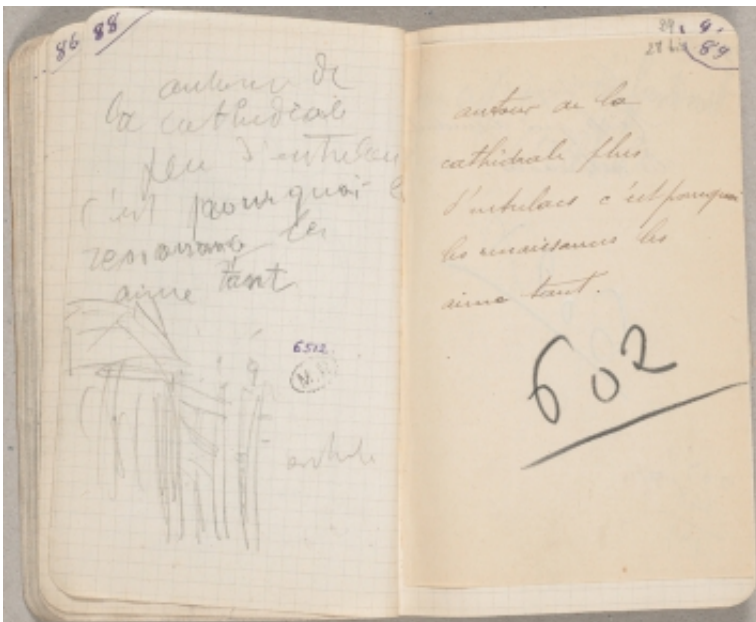 86 88
autour de
la cathédrale
peu d'entrelacs
c'est pourquoi l
renaissance les
aime tant
6512
M.R
29 9.
28 bis 89
autour de la
cathédrale plus
d'entrelacs c'est pourquoi
les renaissances les
aime tant.
602